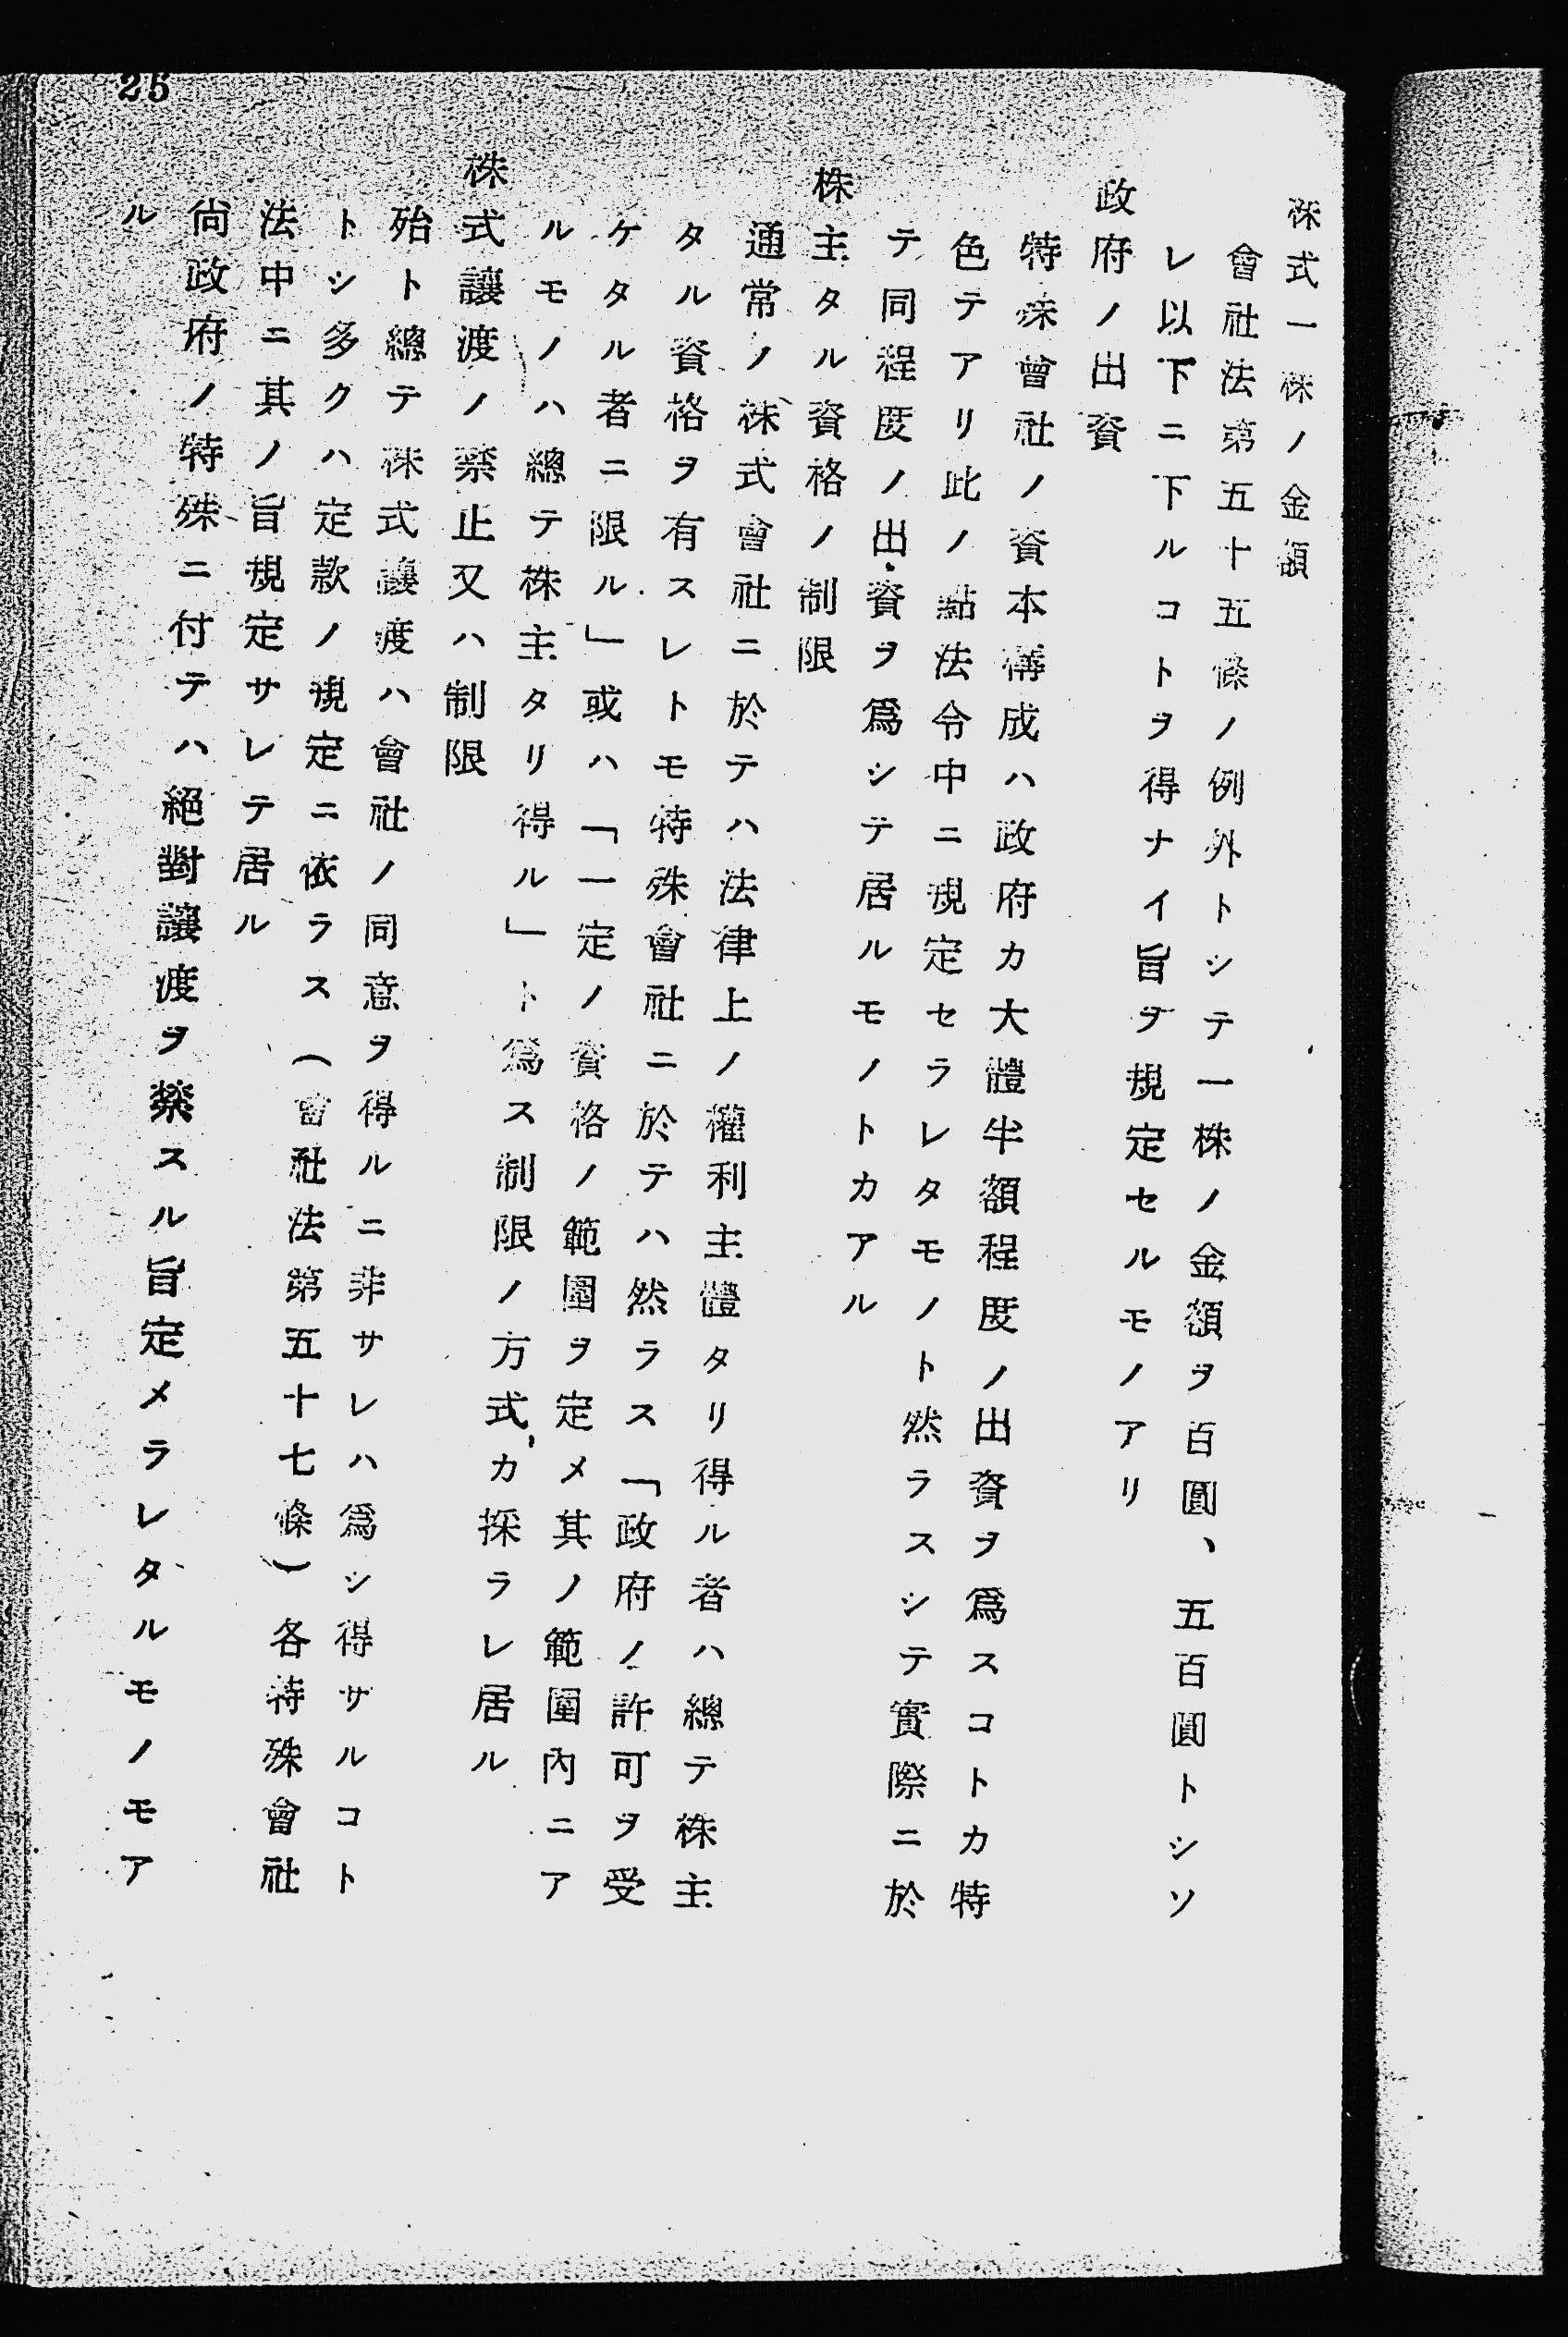 株式一株ノ金額
會社法第五十五條ノ例外トシテ一株ノ金額ヲ百圓、五百圓トシソ
レ以下ニ下ルコトヲ得ナイ旨ヲ規定セルモノアリ
政府ノ出資
特殊會社ノ資本構成ハ政府カ大體半額程度ノ出資ヲ爲スコトカ特
色テアリ此ノ點法令中ニ規定セラレタモノト然ラスシテ實際ニ於
テ同程度ノ出資ヲ爲シテ居ルモノトカアル
株主タル資格ノ制限
通常ノ株式會社ニ於テハ法律上ノ權利主體タリ得ル者ハ總テ株主
タル資格ヲ有スレトモ特殊會社ニ於テハ然ラス「政府ノ許可ヲ受
ケタル者ニ限ル」或ハ「一定ノ資格ノ範圍ヲ定メ其ノ範圍內ニア
ルモノハ總テ株主タリ得ル」ト爲ス制限ノ方式カ採ラレ居ル
株式讓渡ノ禁止又ハ制限
殆ト總テ株式讓渡ハ會社ノ同意ヲ得ルニ非サレハ爲シ得サルコト
トシ多クハ定款ノ規定ニ依ラス（會社法第五十七條）各特殊會社
法中ニ其ノ旨規定サレテ居ル
尙政府ノ特殊ニ付テハ絕對讓渡ヲ禁スル旨定メラレタルモノモア
ル
25